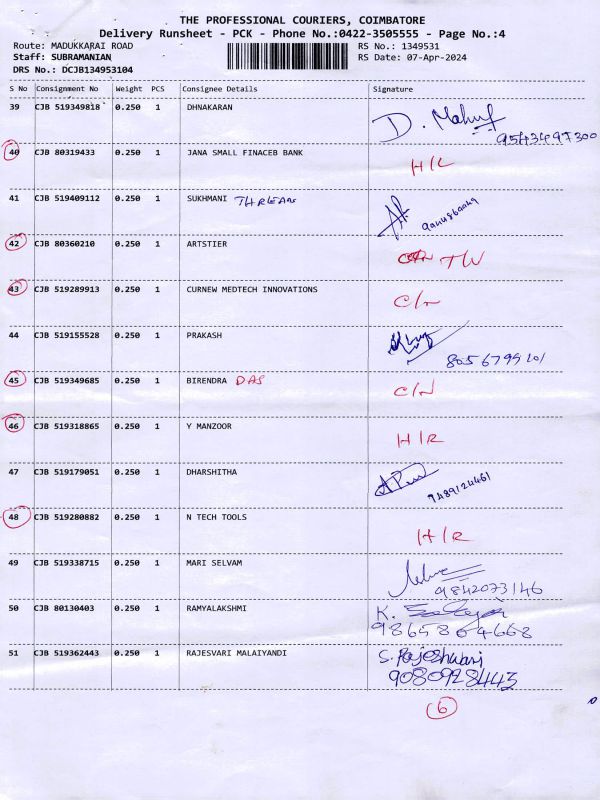 THE PROFESSIONAL COURIERS, COIMBATORE
Delivery Runsheet - PCK - Phone No.:0422-3505555 - Page No.:4
Route: MADUKKARAI ROAD RS No.: 1349531
Staff: SUBRAMANIAN RS Date: 07-Apr-2024
DRS No.: DCJB134953104
S No Consignment No Weight PCS Consignee Details Signature
39 CJB 519349818 0.250 1 DHNAKARAN D.
9543497300
40 CJB 80319433 0.250 1 JANA SMALL FINACEB BANK H/L
41 CJB 519409112 0.250 1 SUKHMANI
42 CJB 80360210 0.250 1 ARTSTIER
43 CJB 519289913 0.250 1 CURNEW MEDTECH INNOVATIONS C/N
44 CJB 519155528 0.250 1 PRAKASH
8056799101
45 CJB 519349685 0.250 1 BIRENDRA DAS C/N
46 CJB 519318865 0.250 1 Y MANZOOR H/R
47 CJB 519179051 0.250 1 DHARSHITHA
9489124461
48 CJB 519280882 0.250 1 N TECH TOOLS H/R
49 CJB 519338715 0.250 1 MARI SELVAM
9842073146
50 CJB 80130403 0.250 1 RAMYALAKSHMI K.
9865864668
51 CJB 519362443 0.250 1 RAJESVARI MALAIYANDI S. Rajeshwari
9080928443
6